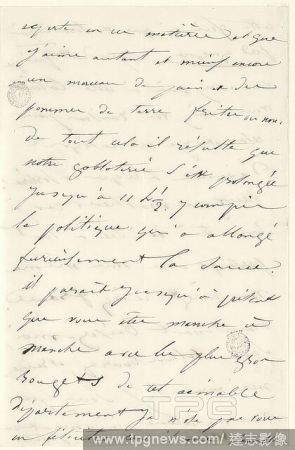 experte en ces matières et que
j'aime autant et mieux encore
un morceau de pain et des
pommes de terre frites ou non.
de tout cela il résulte que
notre s'est prolongée
jusqu'à 11 h ½ y compris
la politique qui a allongé
furieusement la sauce.
il paraît jusqu'à présent
que vous êtes manche à
manche avec les plus gros
rouges de cet aimable
département je n'ose pas vous
en féliciter
TPG
www.tpgnews.com/達志影像